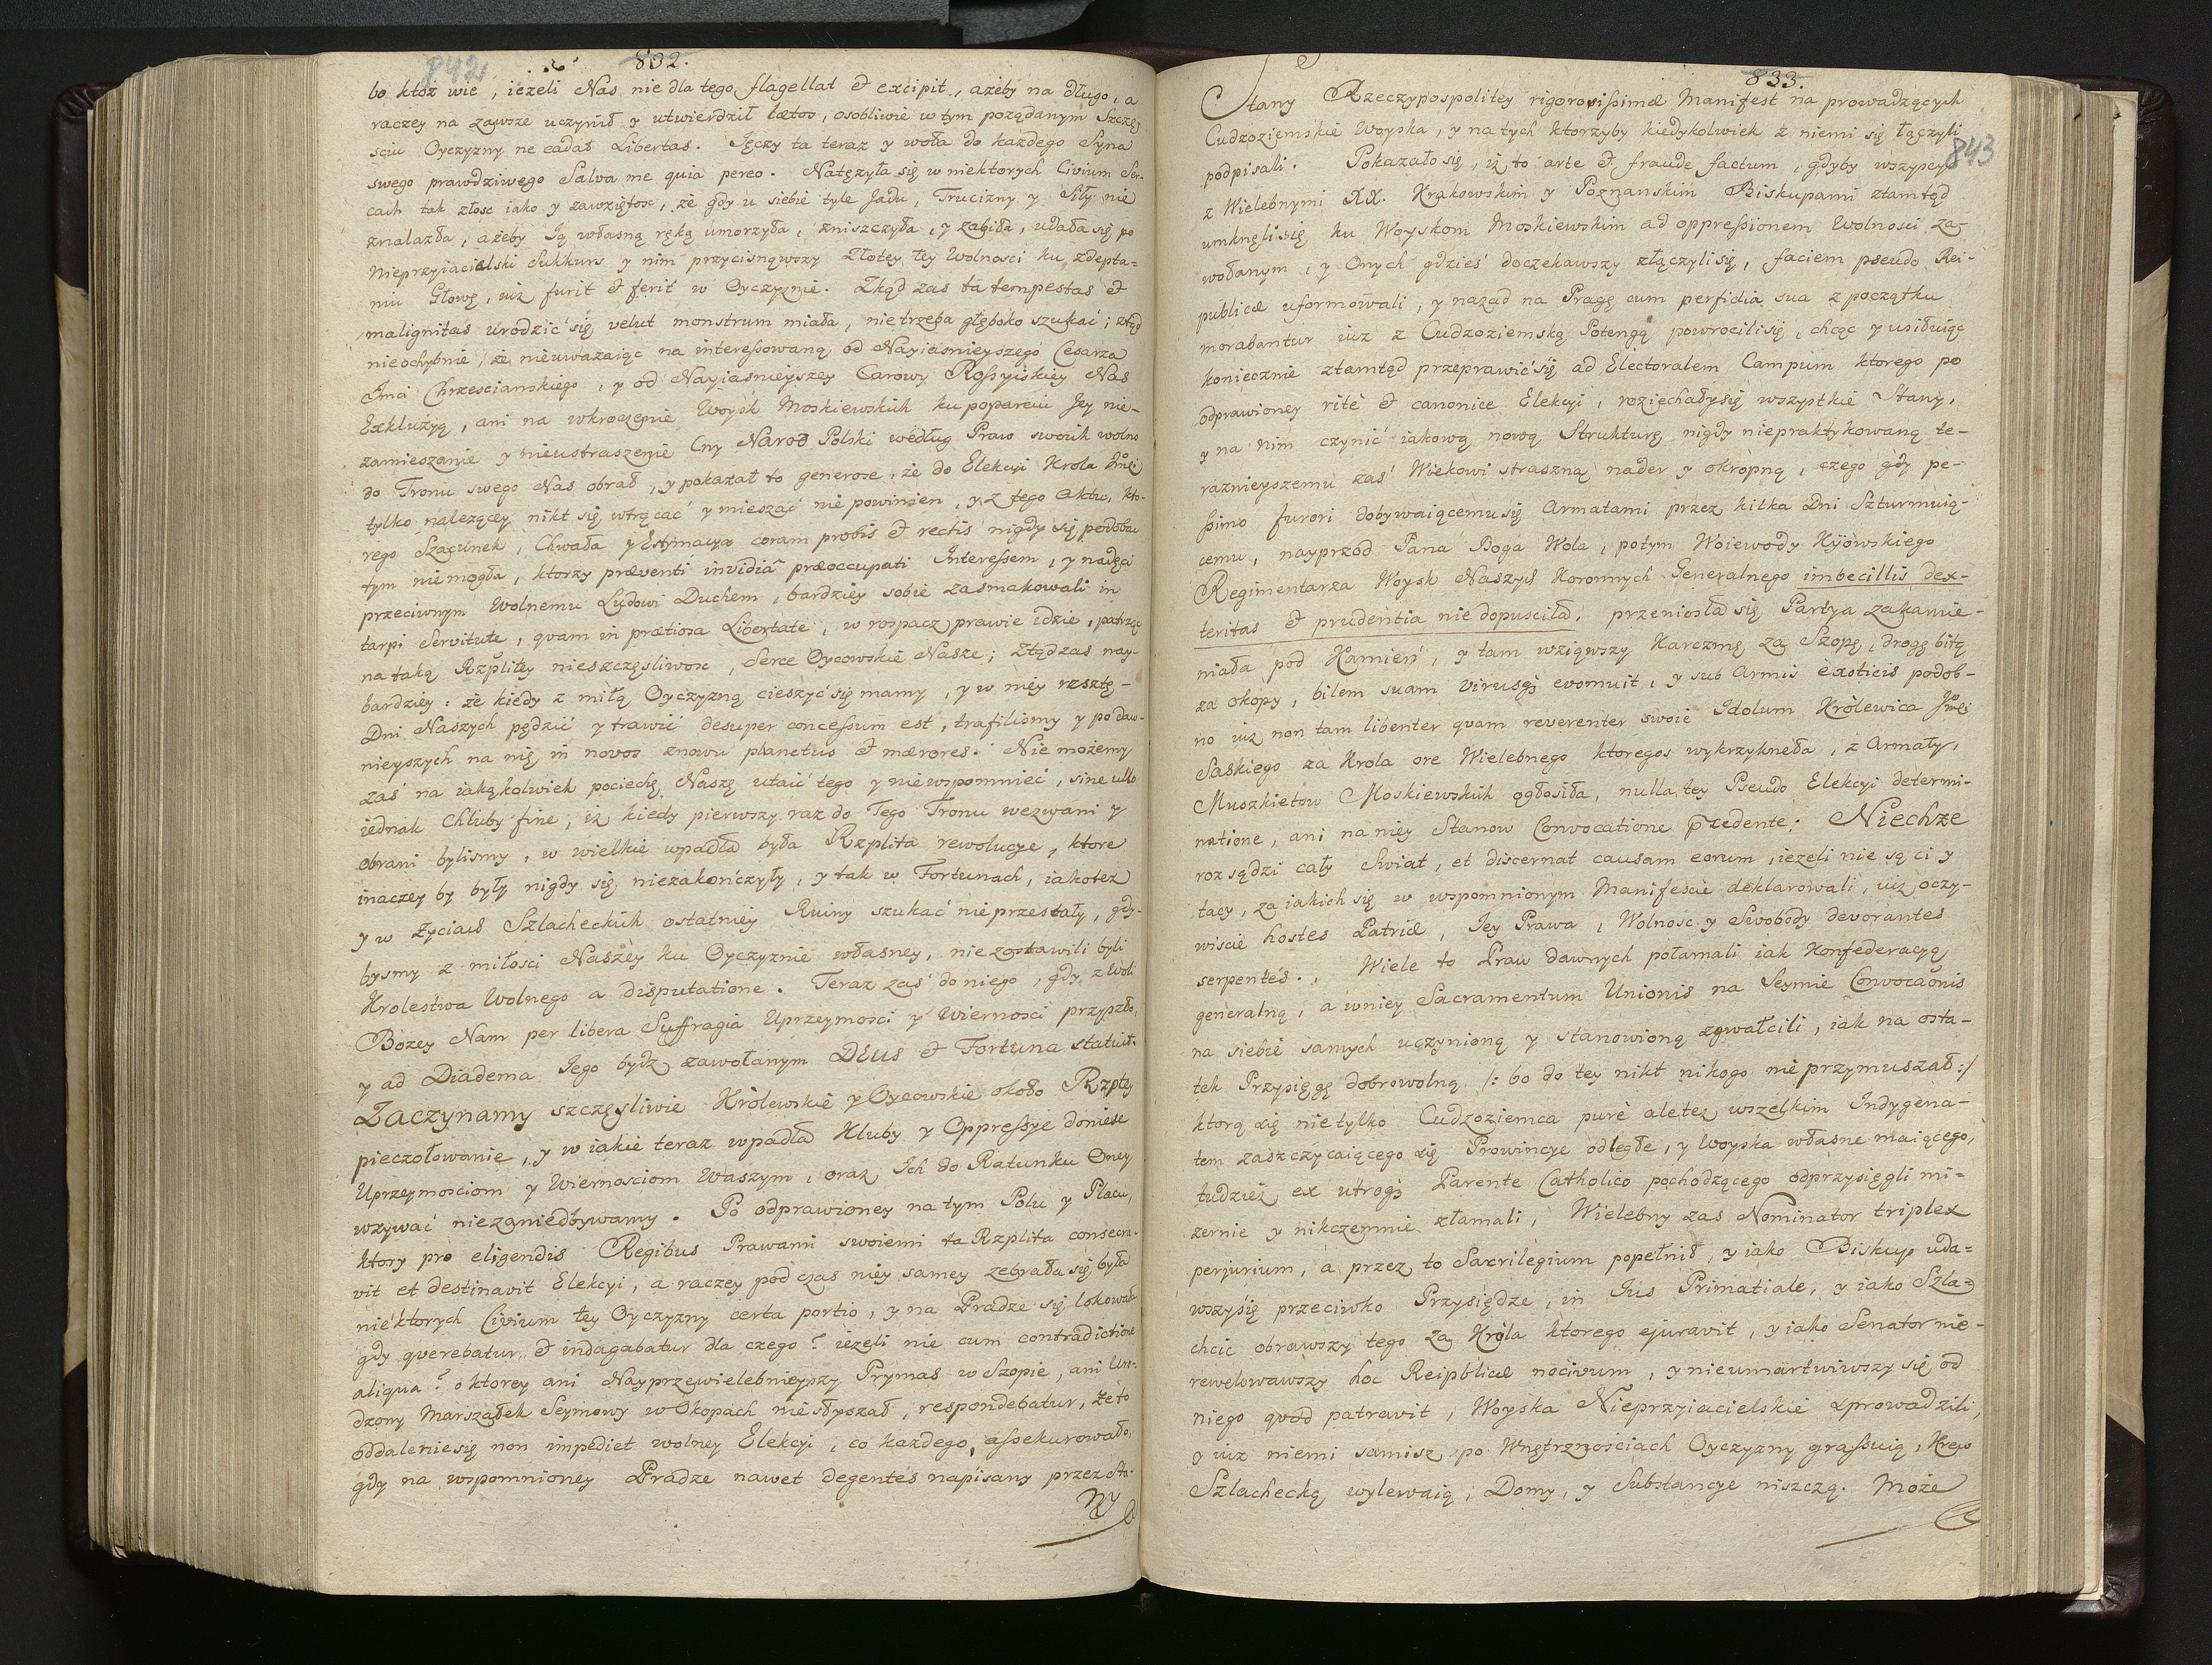 842
832.
bo ktoż wie, ieżeli Nas nie dla tego flagellat & excipit, ażeby na długo, a
raczey na zawsze uczynił y utwierdził lætos, osobliwie w tym pożądanym Szczę
sciu Oyczyzny ne cadat Libertas. Jęczy ta teraz y woła do każdego Syna
swego prawdziwego Salva me quia pereo. Natężyła się w niektorych Civium Ser-
cach tak złosc iako y zawziętosc, że gdy u siebie tyle Jadu, Trucizny y Siły nie
znalazła, ażeby Ją własną ręką umorzyła, zniszczyła, y zabiła, udała się po
Nieprzyiacielski Sukkurs y nim przycisnąwszy Złotey tey Wolnosci ku zdepta=
niu Głowę, iuż furit & ferit w Oyczyznie. Zkąd zas ta tempestas &
malignitas urodzić się velut monstrum miała, nie trzeba głęboko szukać; ztąd
nieochybnie, że nieuwazaiąc na interessowaną od Nayiasnieyszego Cesarza
Jmci Chrzescianskiego, y od Nayiasnieyszey Carowy Rossyiskiey Nas
Exkluzyą, ani na wkroczenie Woysk Moskiewskich ku poparciu Jey nie-
zamieszanie y nieustraszenie Cny Narod Polski według Praw swoich wolno
do Tronu swego Nas obrał, y pokazał to generose, że do Elekcyi Krola Jmci
tylko nalezącey nikt się wtrącać y mieszać nie powinien, y z tego Aktu, kto-
rego Szacunek, Chwała y Estymacya coram probis & rectis nigdy się podobać
tym niemogła, ktorzy præventi invidiâ præoccupati Interessem, y nadęci
przeciwnym Wolnemu Ludowi Duchem, bardziey sobie zasmakowali in
tarpi Servitute, quam in prætiosa Libertate, w rospacz prawie idzie, patrząc
na taką Rzplitey nieszczęsliwosc, Serce Oycowskie Nasze; Ztąd zas nay-
bardziey: że kiedy z miłą Oyczyzną cieszyć się mamy, y w niey resztę-
Dni Naszych pędzić y trawić desuper concessum est, trafilismy y po daw-
nieyszych na nię in novos znowu planctus & mærores. Nie możemy
zaś na iakążkolwiek pociechę Naszę utaić tego y nie wspomnieć, sine ullo
iednak Chluby fine, iż kiedy pierwszy raz do Tego Tronu wezwani y
obrani bylismy, w wielkie wpadła była Rzplita rewolucye, ktore
inaczey by były nigdy się niezakończyły, y tak w Fortunach, iakoteż
y w życiach Szlacheckich ostatniey Ruiny szukać nie przestały, gdy-
bysmy z miłosci Naszey ku Oyczyznie własney, nie zostawili byli
Krolestwa Wolnego a disputatione. Teraz zaś do niego, gdy z Woli
Bozey Nam per libera Suffragia Uprzeymosci y Wiernosci przyszło,
y ad Diadema Jego bydz zawołanym Deus & Fortuna statuit.
Zaczynamy szczęsliwie Krolewskie y Oycowskie około Rzptey
pieczołowanie, y w iakie teraz wpadła Kluby y Oppressye doniesc
Uprzeymosciom y Wiernosciom Waszym, oraz Jch do Ratunku Oney
wzywać niezaniedbywamy. Po odprawioney na tym Polu y Placu,
ktory pro eligendis Regibus Prawami swoiemi ta Rzplita consecra-
vit et destinavit Elekcyi, a raczey pod czas niey samey zebrała się była
niektorych Civium tey Oyczyzny certa portio, y na Pradze się lokowała
gdy querebatur & indagabatur dla czego? ieżeli nie cum contradictione
aliqua? o ktorey ani Nayprzewielebnieyszy Prymas w Szopie, ani Uro-
dzony Marszałek Seymowy w Okopach nie słyszał, respondebatur, że to
oddalenie się non impediet wolney Elekcyi, co każdego assekurowało,
gdy na wspomnioney Pradze nawet degentes napisany przez Sta-
ny
833.
843
Stany Rzeczypospolitey rigorosissimæ Manifest na prowadzących
Cudzoziemskie Woyska, y na tych ktorzyby kiedykolwiek z niemi się łączyli
podpisali. Pokazało się, iż to arte & fraude factum, gdyby wszyscy
z Wielebnymi XX. Krakowskim y Poznanskim Biskupami ztamtąd
umknęli się ku Woyskom Moskiewskim ad oppressionem Wolnosci za-
wołanym, y Onych gdzieś doczekawszy złączyli się, faciem pseudo Rei-
publicæ uformowali, y nazad na Pragę cum perfidia sua z początku
morabantur iuż z Cudzoziemską Potengą powrocili się, chcąc y usiłuiąc
koniecznie ztamtąd przeprawić się ad Electoralem Campum ktorego po
odprawioney ritè & canonice Elekcyi, roziechały się wszytkie Stany,
y na nim czynić iakową nową Strukturę nigdy niepraktykowaną te-
raznieyszemu zaś Wiekowi straszną nader y okropną, czego gdy pe-
ssimo furori dobywaiącemu się Armatami przez kilka Dni Szturmuią-
cemu, nayprzod Pana Boga Wola, potym Woiewody Kijowskiego
Regimentarza Woysk Naszych Koronnych Generalnego imbecillis dex-
teritas & prudentia nie dopusciła, przeniosła się Partya zakamie-
niała pod Kamień, y tam wziąwszy Karczmę za Szopę, drogę bitą
za okopy, bilem suam virusq; evomuit, y sub Armis exoticis podob-
no iuż non tam libenter quam reverenter swoie Idolum Krolewica Jmci
Saskiego za Krola ore Wielebnego ktoregos wykrzyknęła, z Armaty,
Muszkietow Moskiewskich ogłosiła, nulla tey Pseudo Elekcyi determi-
natione, ani na niey Stanow Convocatione præcedente. Niechże
rozsądzi cały Swiat, et discernat causam eorum, ieżeli nie są ci y
tacy, za iakich się w wspomnionym Manifescie deklarowali, iuż oczy-
wiscie hostes Patriæ, Jey Prawa, Wolnosc y Swobody devorantes
serpentes. Wiele to Praw dawnych połamali iak Konfederacyą
generalną, a w niey Sacramentum Unionis na Seymie Convocaõnis
na siebie samych uczynioną y stanowioną zgwałcili, iak na osta-
tek Przysięgę dobrowolną /: bo do tey nikt nikogo nie przymuszał :/
ktorą się nie tylko Cudzoziemca purè ale też wszelkim Indygena-
tem zaszczycaiącego się Prowincye odległe, y Woyska własne maiącego,
tudzież ex utroq; Parente Catholico pochodzącego odprzysięgli mi-
zernie y nikczemnie złamali, Wielebny zas Nominator triplex
perjurium, a przez to Sacrilegium popełnił, y iako Biskup uda=
wszy się przeciwko Przysiędze, in Jus Primatiale, y iako Szla=
chcic obrawszy tego za Krola ktorego ejuravit, y iako Senator nie-
rewelowawszy hoc Reipblicæ nocivum, y nieumartwiwszy się od
niego quod patravit, Woyska Nieprzyiacielskie sprowadzili,
y iuż niemi samisz po Wnętrznościach Oyczyzny grassuią, Krew
Szlachecką wylewaią, Domy, y Substancye niszczą. Może